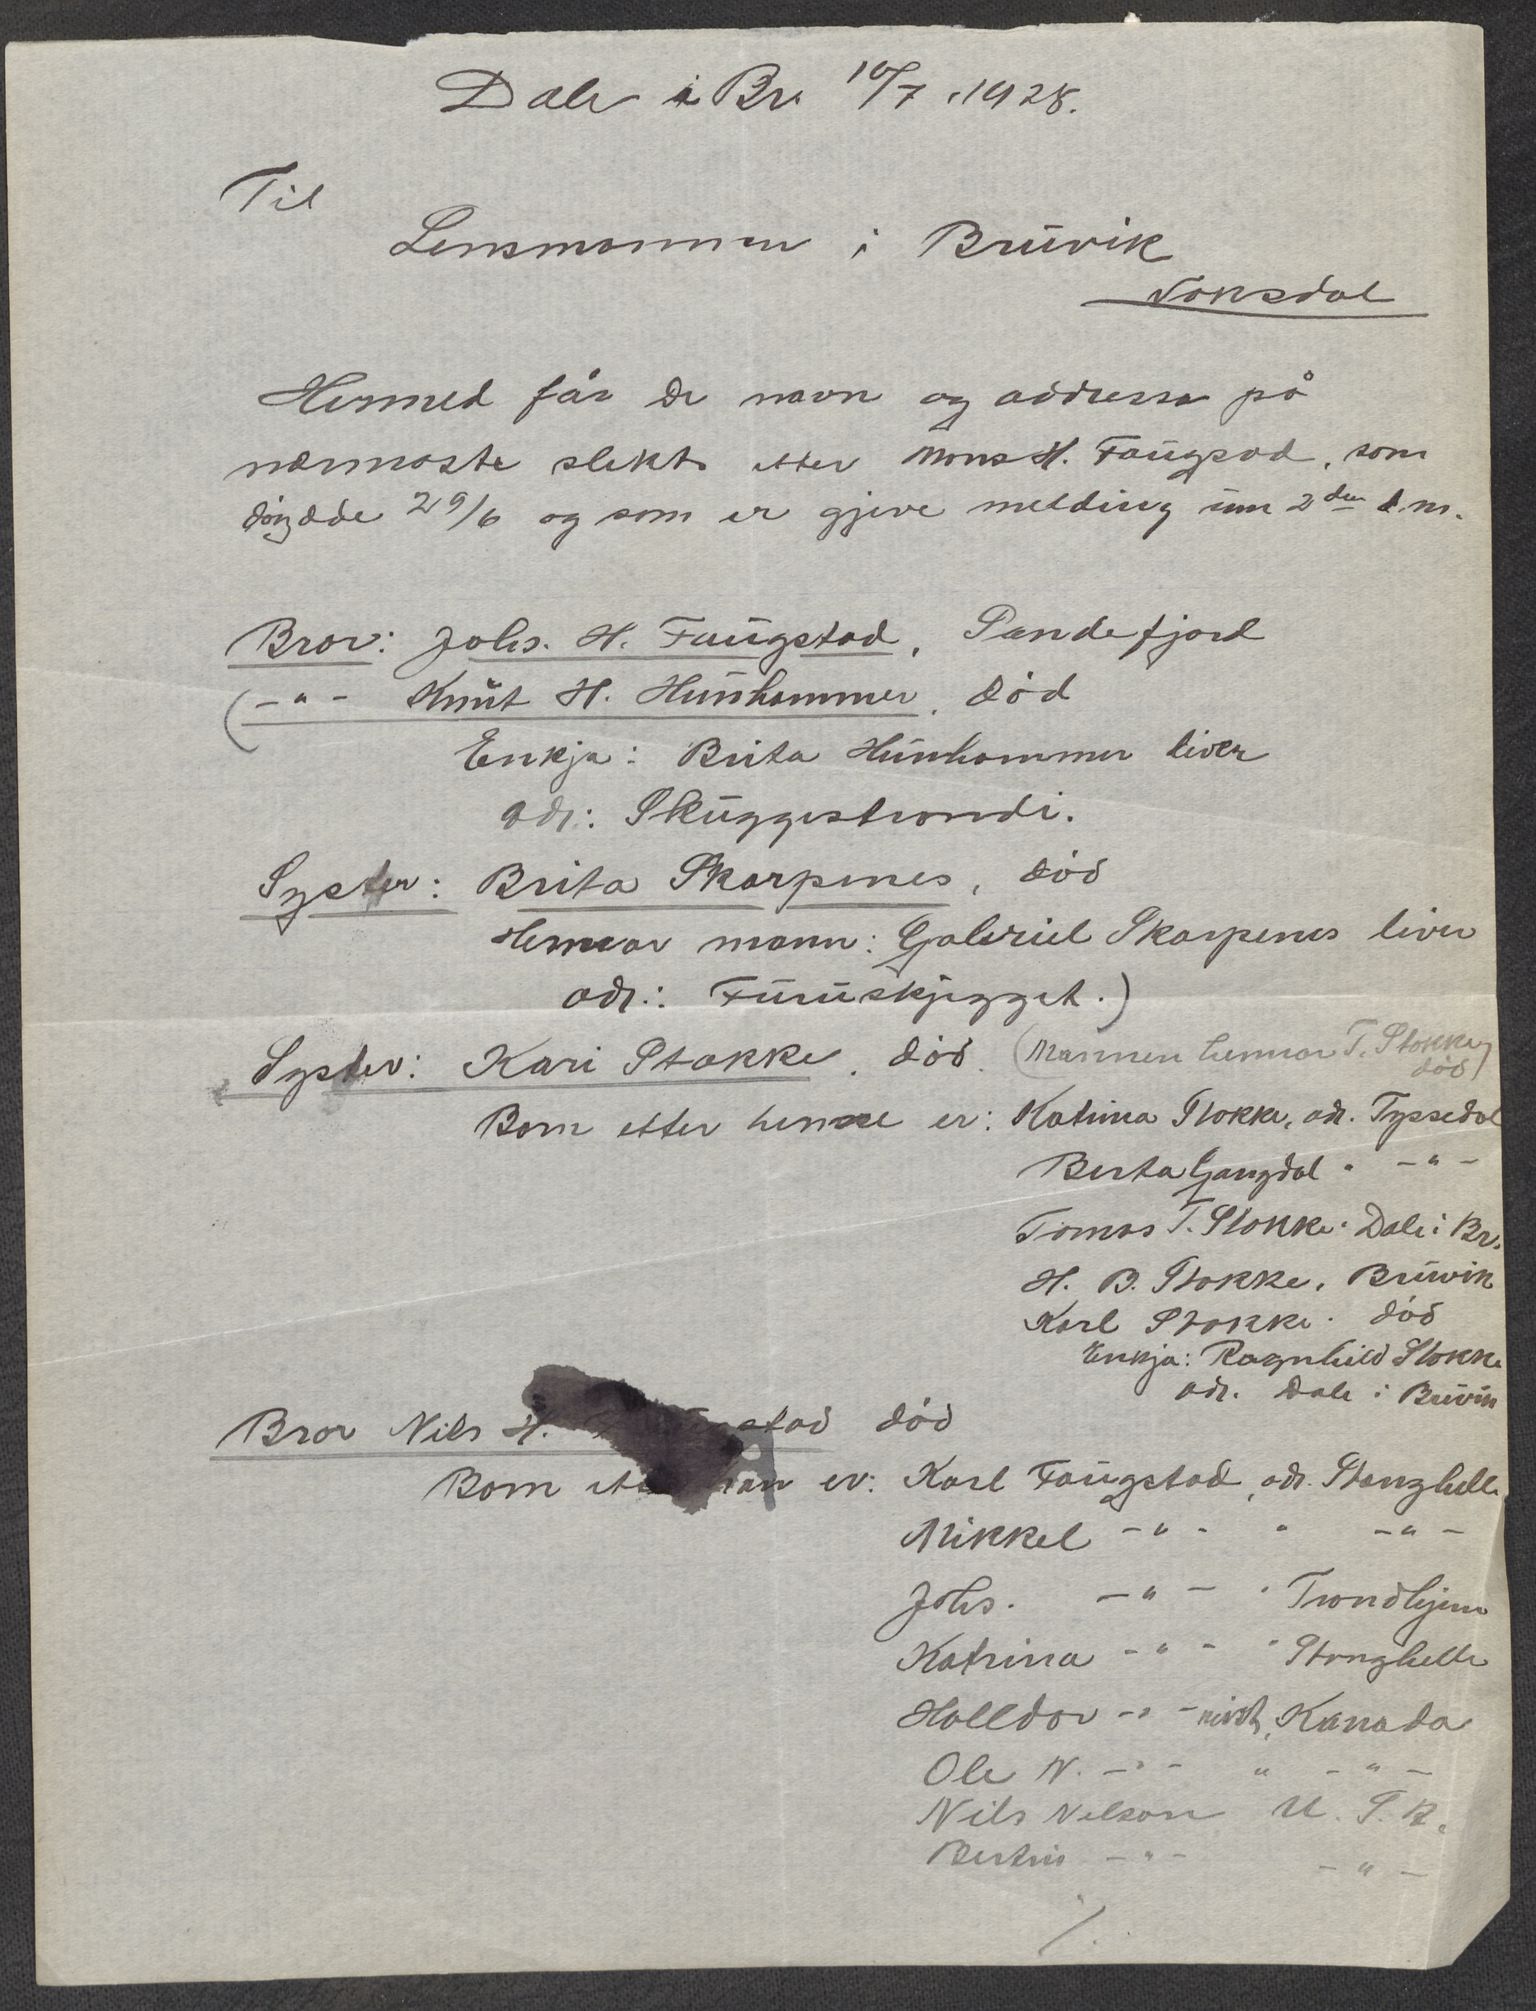 Dale i Br. 10/7 1928.
Til
Lensmannen i Bruvik
Vaksdal
Hermed får De navn og addressa på
nærmaste slekt etter Mons H. Faugsad, som
døydde 29/6 og som er gjeve melding um 2den d.m.
Bror: Johs. H. Faugstad, Sandefjord
(-"- Knut H. Hunhammer, død
Enkja: Brita Hunhammer liver
adr: Skuggestrondi.
Syster: Brita Skarpenes, død
Hennar mann: Gabriel Skarpenes liver
adr.: Furuskjegget.)
Syster: Kari Stokke, død. (Mannen hennar T. Stokke,
død)
Born etter henne er: Katrina Stokke, adr. Tyssedal
Berta Gangdal " -"-
Tomas T. Stokke. Dale i Br.
H. B. Stokke, Bruvik
Karl Stokke. død
Enkja: Ragnhild Stokke
adr. Dale i Bruvik
Bror Nils H. stad død
Born han er: Karl Faugstad, adr. Stanghelle
Mikkel -"- " -"-
Johs. -"- " Trondhjem
Katrina -"- " Stanghelle
Halldor -"- Kanada
Ole N. -"- " -"-
Nils Nelson U.S.A.
Bertin -"- -"-
/.